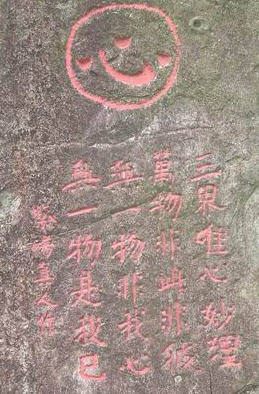 心
三界唯心妙理
萬物非此非彼
無一物非我心
無一物是我己
紫陽真人作